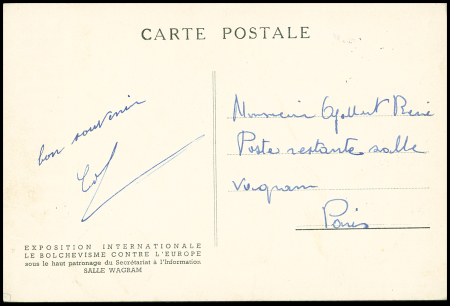 CARTE POSTALE
bon souvenir
Monsieur René
Poste restante salle
Wagram
Paris
EXPOSITION INTERNATIONALE
LE BOLCHEVISME CONTRE L'EUROPE
sous le haut patronage du Secrétariat à l'Information
SALLE WAGRAM